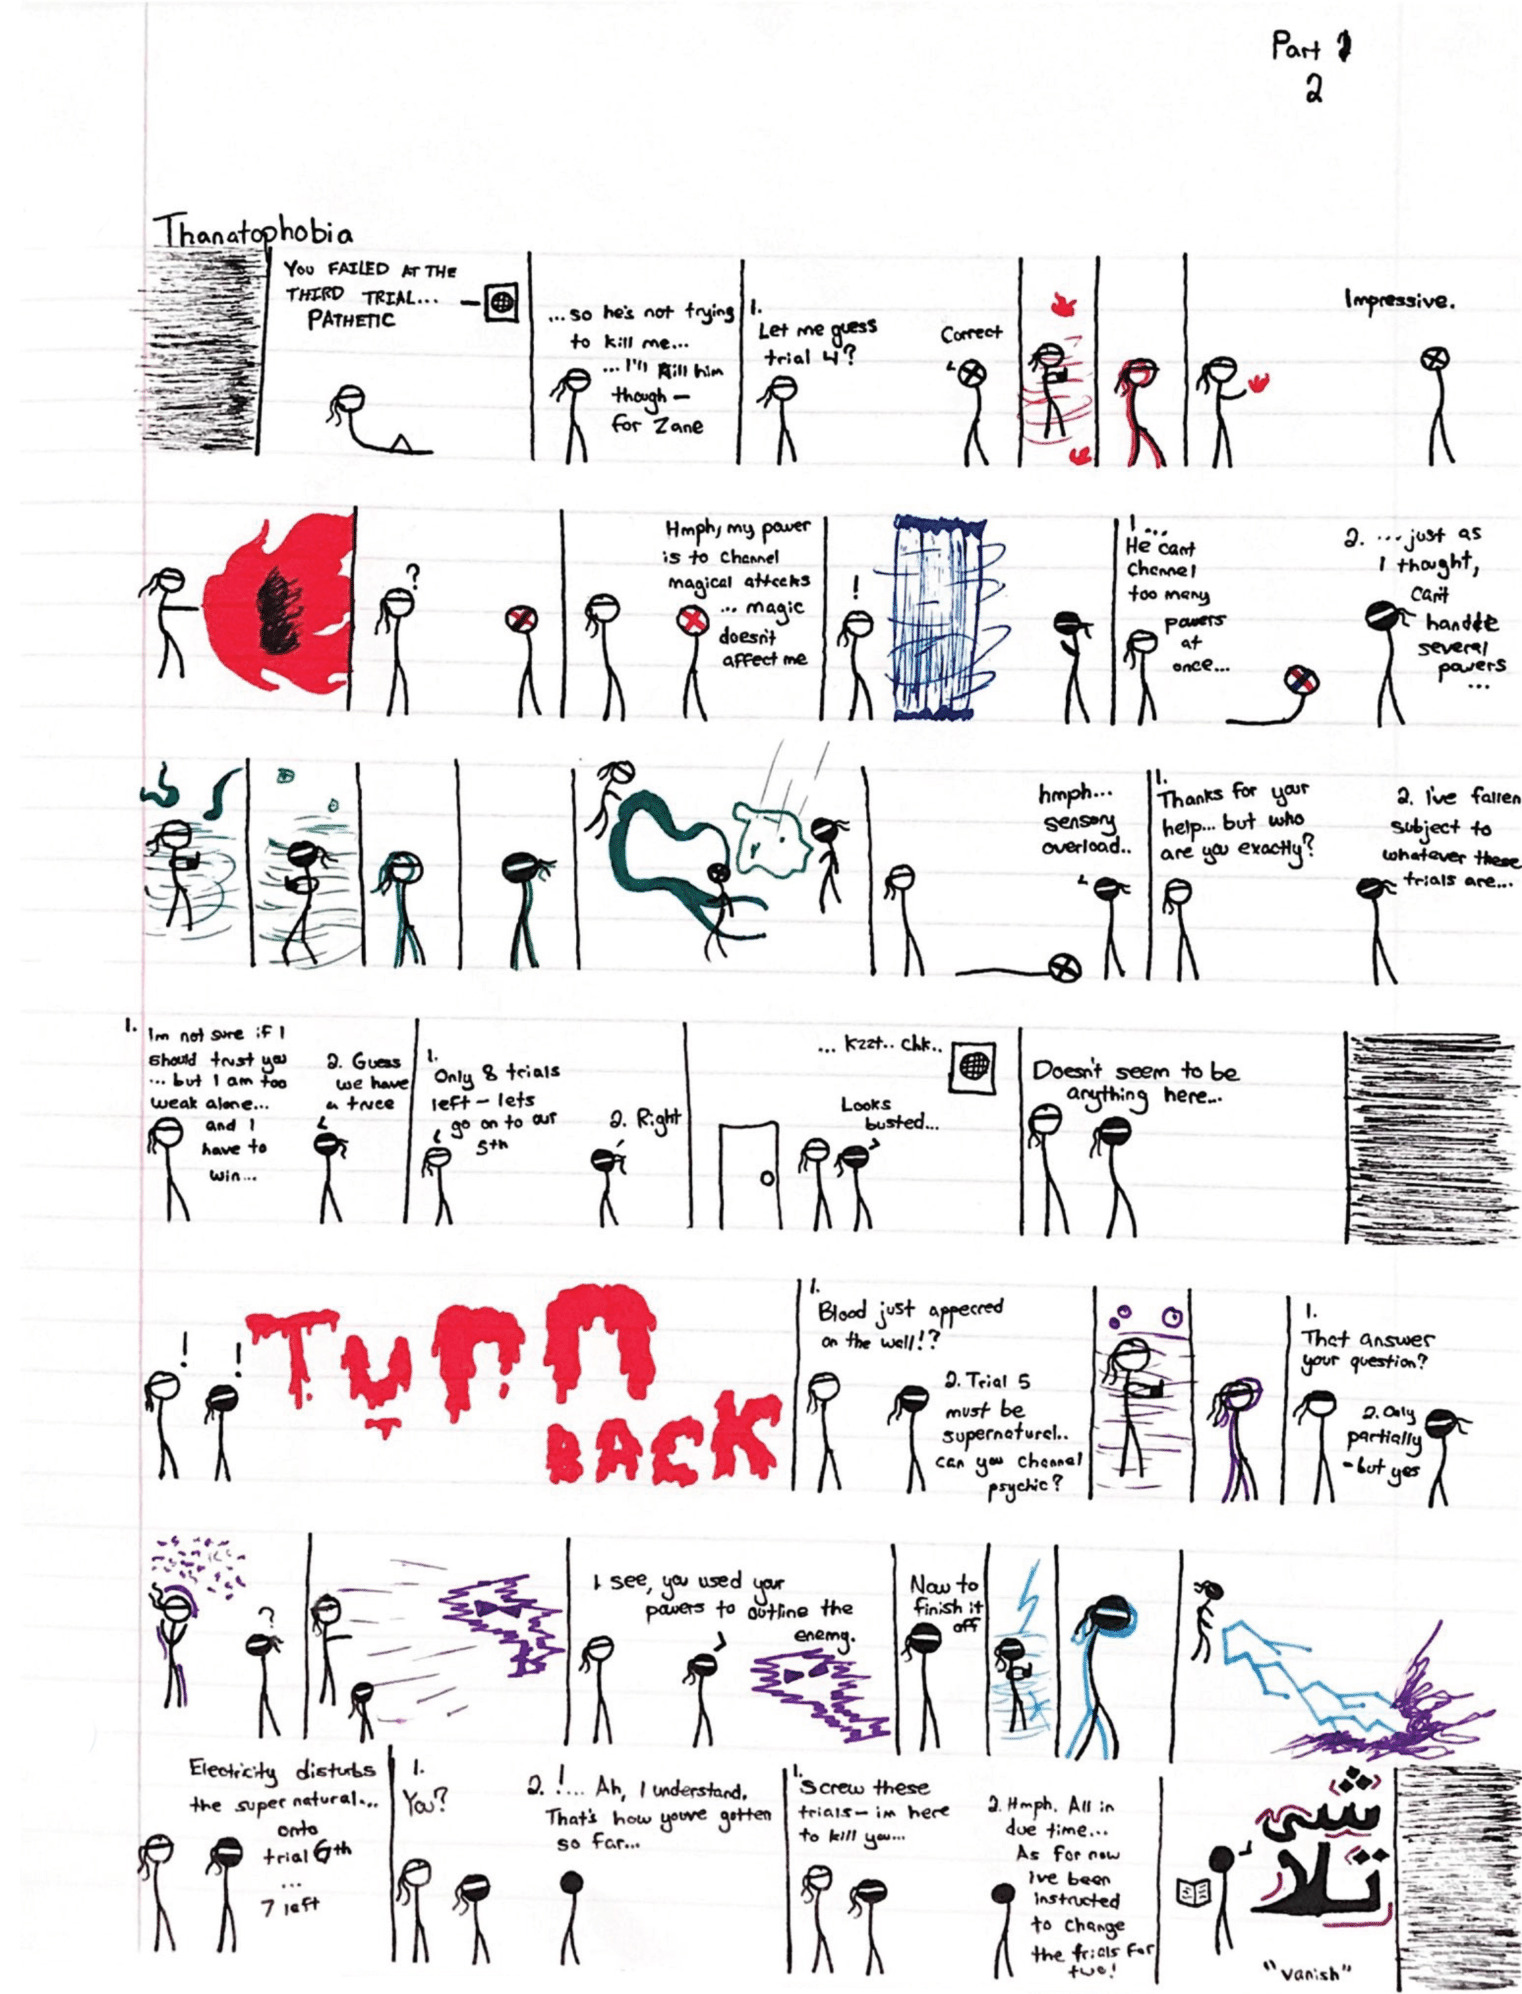 Part 1
2
Thanatophobia
YOU FAILED AT THE
THIRD TRIAL...
PATHETIC
...so he's not trying
to kill me...
...I'll kill him
though —
for Zane
1.
Let me guess
trial 4?
Correct
Impressive.
?
Hmph, my power
is to channel
magical attacks
... magic
doesn't
affect me
!
1...
He cant
channel
too many
powers
at
once...
2. ...just as
I thought,
can't
handle
several
powers
...
hmph...
sensory
overload..
1.
Thanks for your
help... but who
are you exactly?
2. I've fallen
subject to
whatever these
trials are...
1.
Im not sure if I
should trust you
... but I am too
weak alone...
and I
have to
win...
2. Guess
we have
a truce
1.
Only 8 trials
left — lets
go on to our
5th
2. Right
... kzzt.. chk..
Looks
busted...
Doesn't seem to be
anything here...
! !
TURN
BACK
1.
Blood just appeared
on the wall!?
2. Trial 5
must be
supernatural..
can you channel
psychic?
1.
That answer
your question?
2. Only
partially
- but yes
?
I see, you used your
powers to outline the
enemy.
Now to
finish it
off
Electricity disturbs
the supernatural...
onto
trial 6th
...
7 left
1.
You?
2. !... Ah, I understand.
That's how youve gotten
so far...
1.
Screw these
trials — im here
to kill you...
2. Hmph. All in
due time...
As for now
I've been
instructed
to change
the trials for
two!
"vanish"